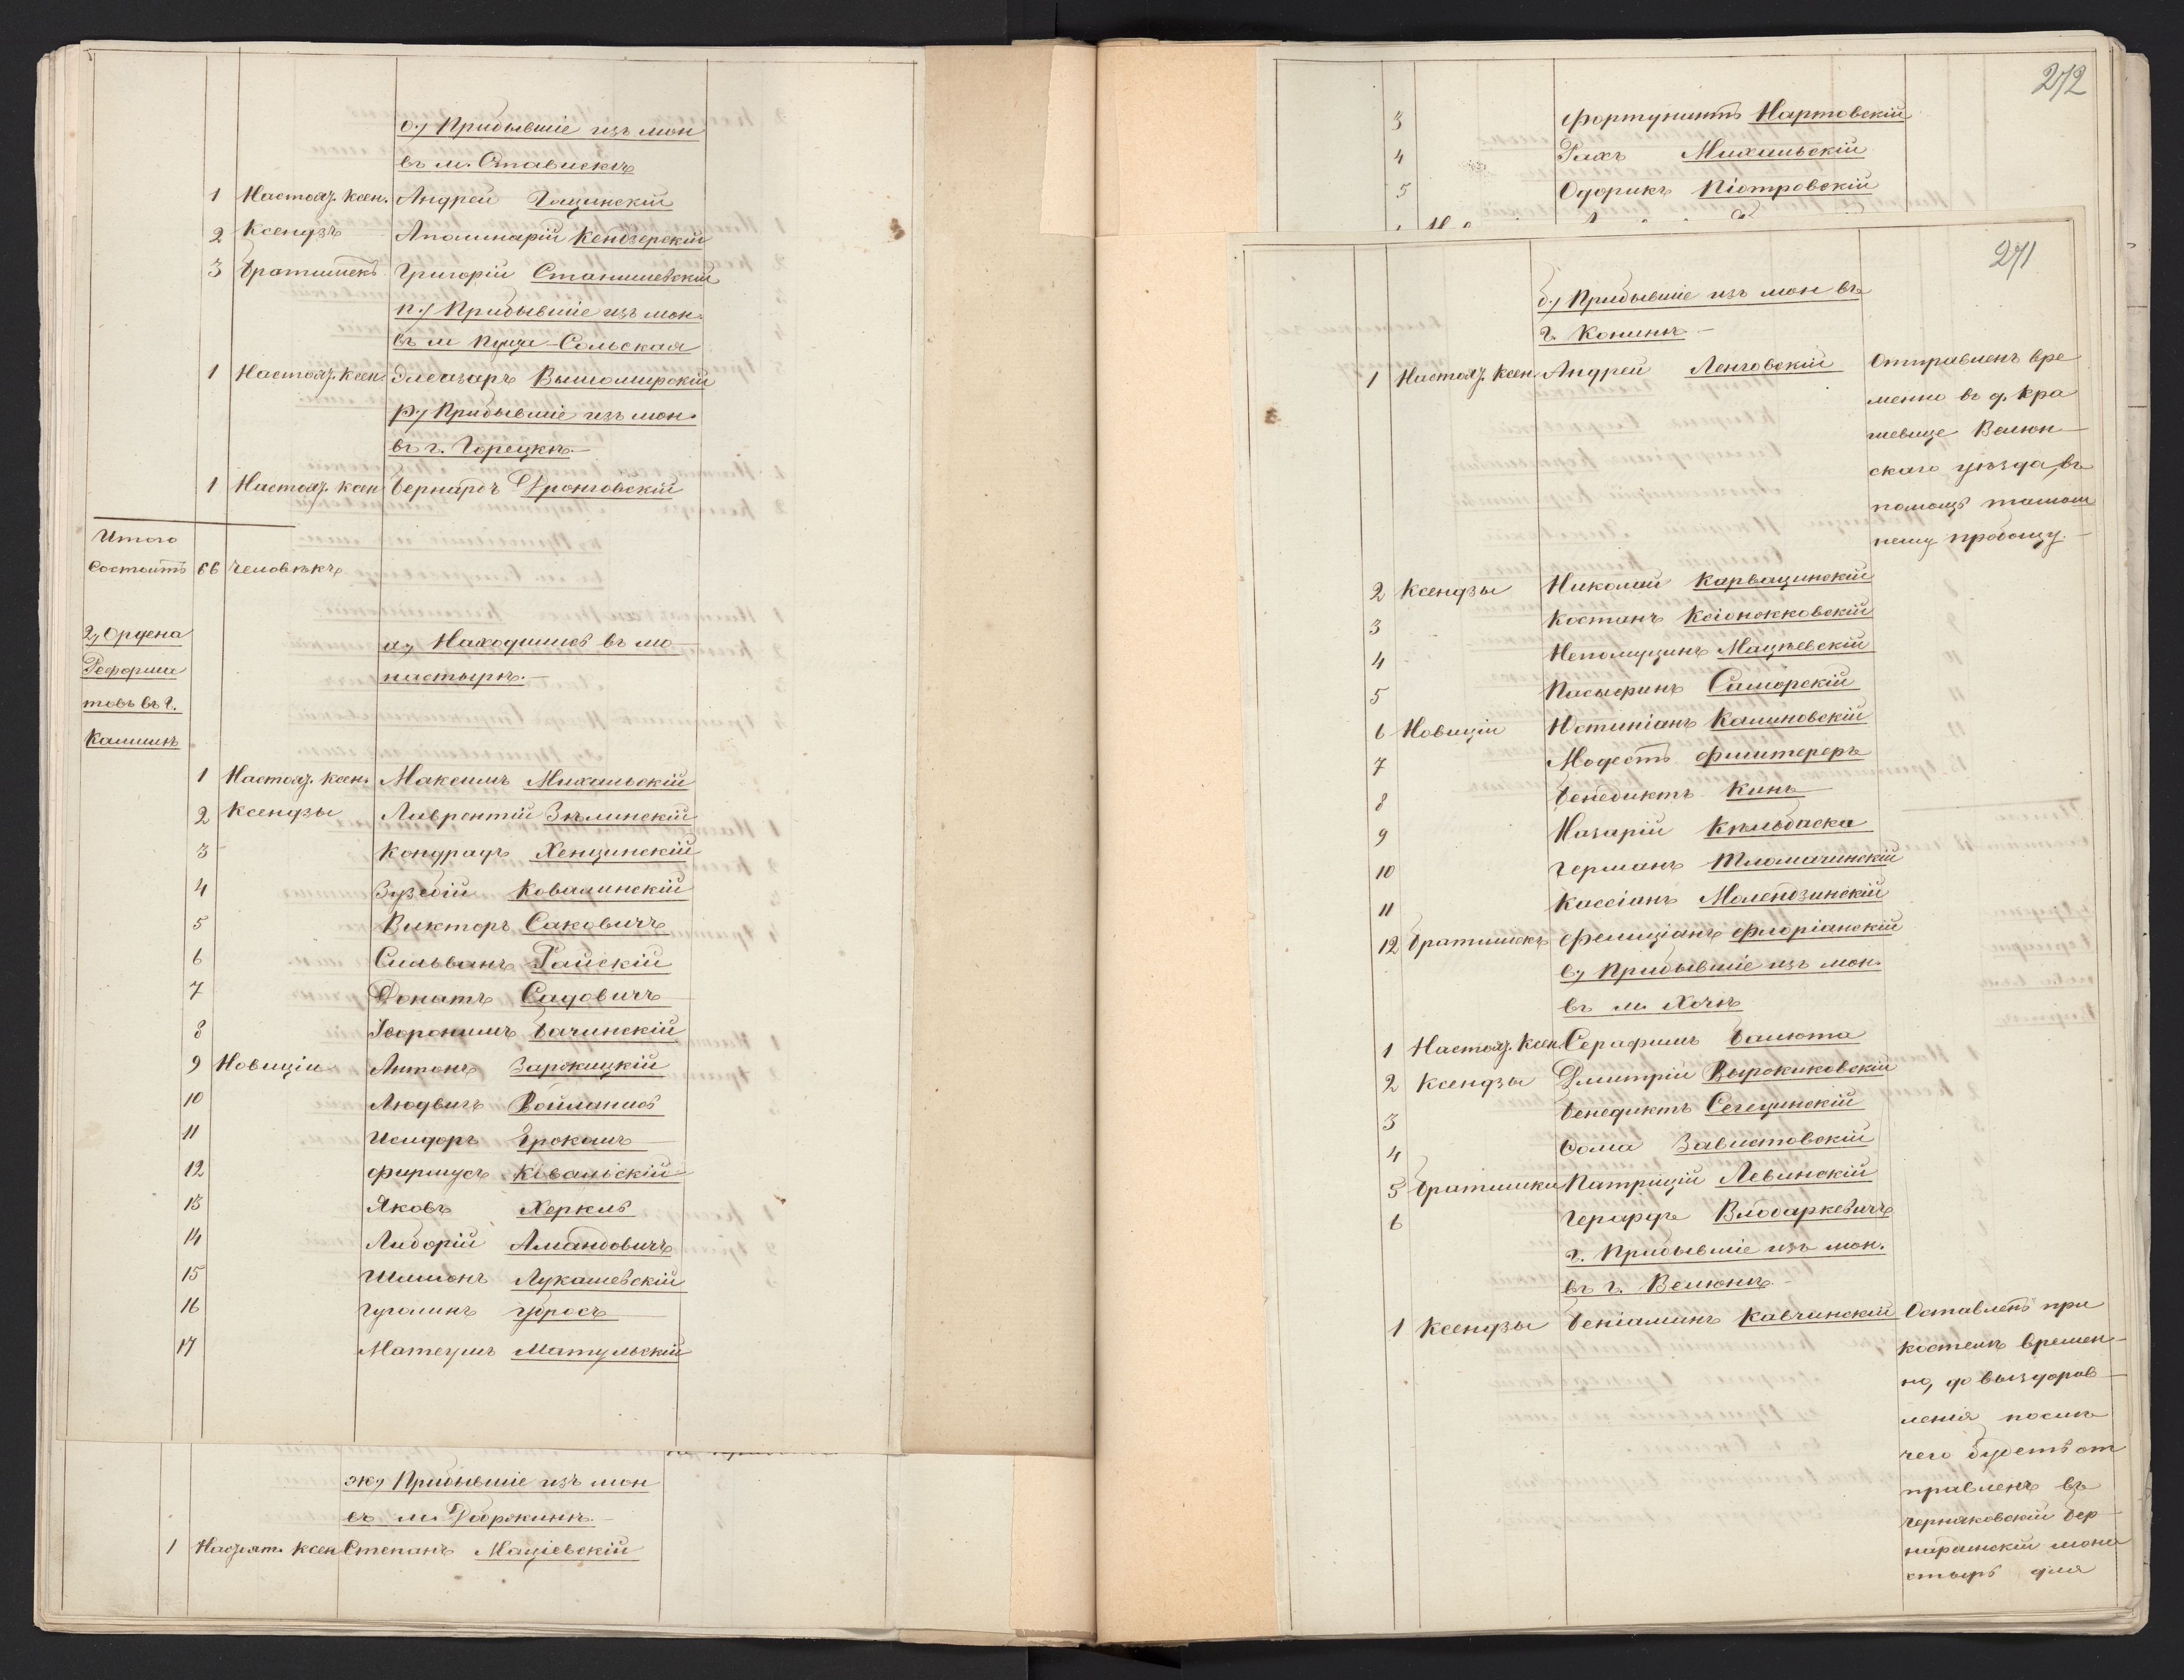 о., Прибывшіе изъ мон
въ м. Ставискъ
1 Настояз. ксен. Андрей Гащинскій
2 Ксендзъ Аполинарій Кендзерскій
3 Братишекъ Григорій Станишевскій
п., Прибывшіе изъ мон.
въ м Пуще-Сольская
1 Настояз. ксен. Элеазаръ Вышомирскій
р., Прибывшіе изъ мон.
въ г. Горецкѣ.
1 Настояз. ксен Бернардъ Дронговскій
Итого
Состоитъ 66 человѣкъ
2, Ордена
Реформа
товъ въ г.
Калишѣ
а, Находишись въ мо
настырѣ.
1 Настояз. ксен. Максимъ Михальскій
2 Ксендзы Лаврентій Зѣлинскій
3 Кондрадъ Хенцинскій
4 Эузебій Ковалинскій
5 Викторъ Саковичъ
6 Сильванъ Райскій
7 Донатъ Садовичъ
8 Іеронимъ Бачинскій
9 Новиціи Антонъ Зарожицкій
10 Людвигъ Войланис
11 Исидоръ Ерокашъ
12 Фирмусъ Ковальскій
13 Яковъ Херкль
14 Либорій Амандовичъ
15 Шимонъ Лукашевскій
16 Гуголинъ Убросъ
17 Матеушъ Матульскій
ж, Прибывшіе изъ мон
въ м. Добржинѣ.
1 Настоят. ксен Степанъ Маціевскій
272
3 Фортунатъ Нартовскій
4 Рахъ Михальскій
5 Одорикъ Піотровскій
271
б., Прибывшіе изъ мон въ
г. Конинѣ
1 Настояз. ксен. Андрей Ленговскій Отправленъ вре
менно въ д. Кра
шевице Велюн
скаго уѣзда, въ
помощь тамош
нему пробощу.
2 Ксендзы Николай Карвацинскій
3 Костанъ Ксіонжковскій
4 Непомуцинъ Мацѣевскій
5 Пасыфикъ Саморскій
6 Новиціи Юстиніанъ Калиновскій
7 Модестъ Флитереръ
8 Бенедиктъ Кинъ
9 Назарій Кѣлбаска
10 Германъ Тломачинскій
11 Кассіанъ Молендзинскій
12 Братишекъ Фелиціанъ Флоріанскій
в, Прибывшіе изъ мон.
въ м. Хочѣ
1 Настояз. ксен. Серафимъ Балюта
2 Ксендзы Дмитрій Выржиковскій
3 Бенедиктъ Сегецинскій
4 Ѳома Завистовскій
5 Братишки Патрицій Левинскій
6 Герардъ Влодаркевичъ
г. Прибывшіе изъ мон.
въ г. Велюнѣ
1 Ксендзы Беніаминъ Кавчинскій Оставленъ при
костелѣ времен
но, до выздоров
ленія послѣ
чего будетъ от
правленъ въ
Черняковскій Бер
нардинскій мона
стырь для